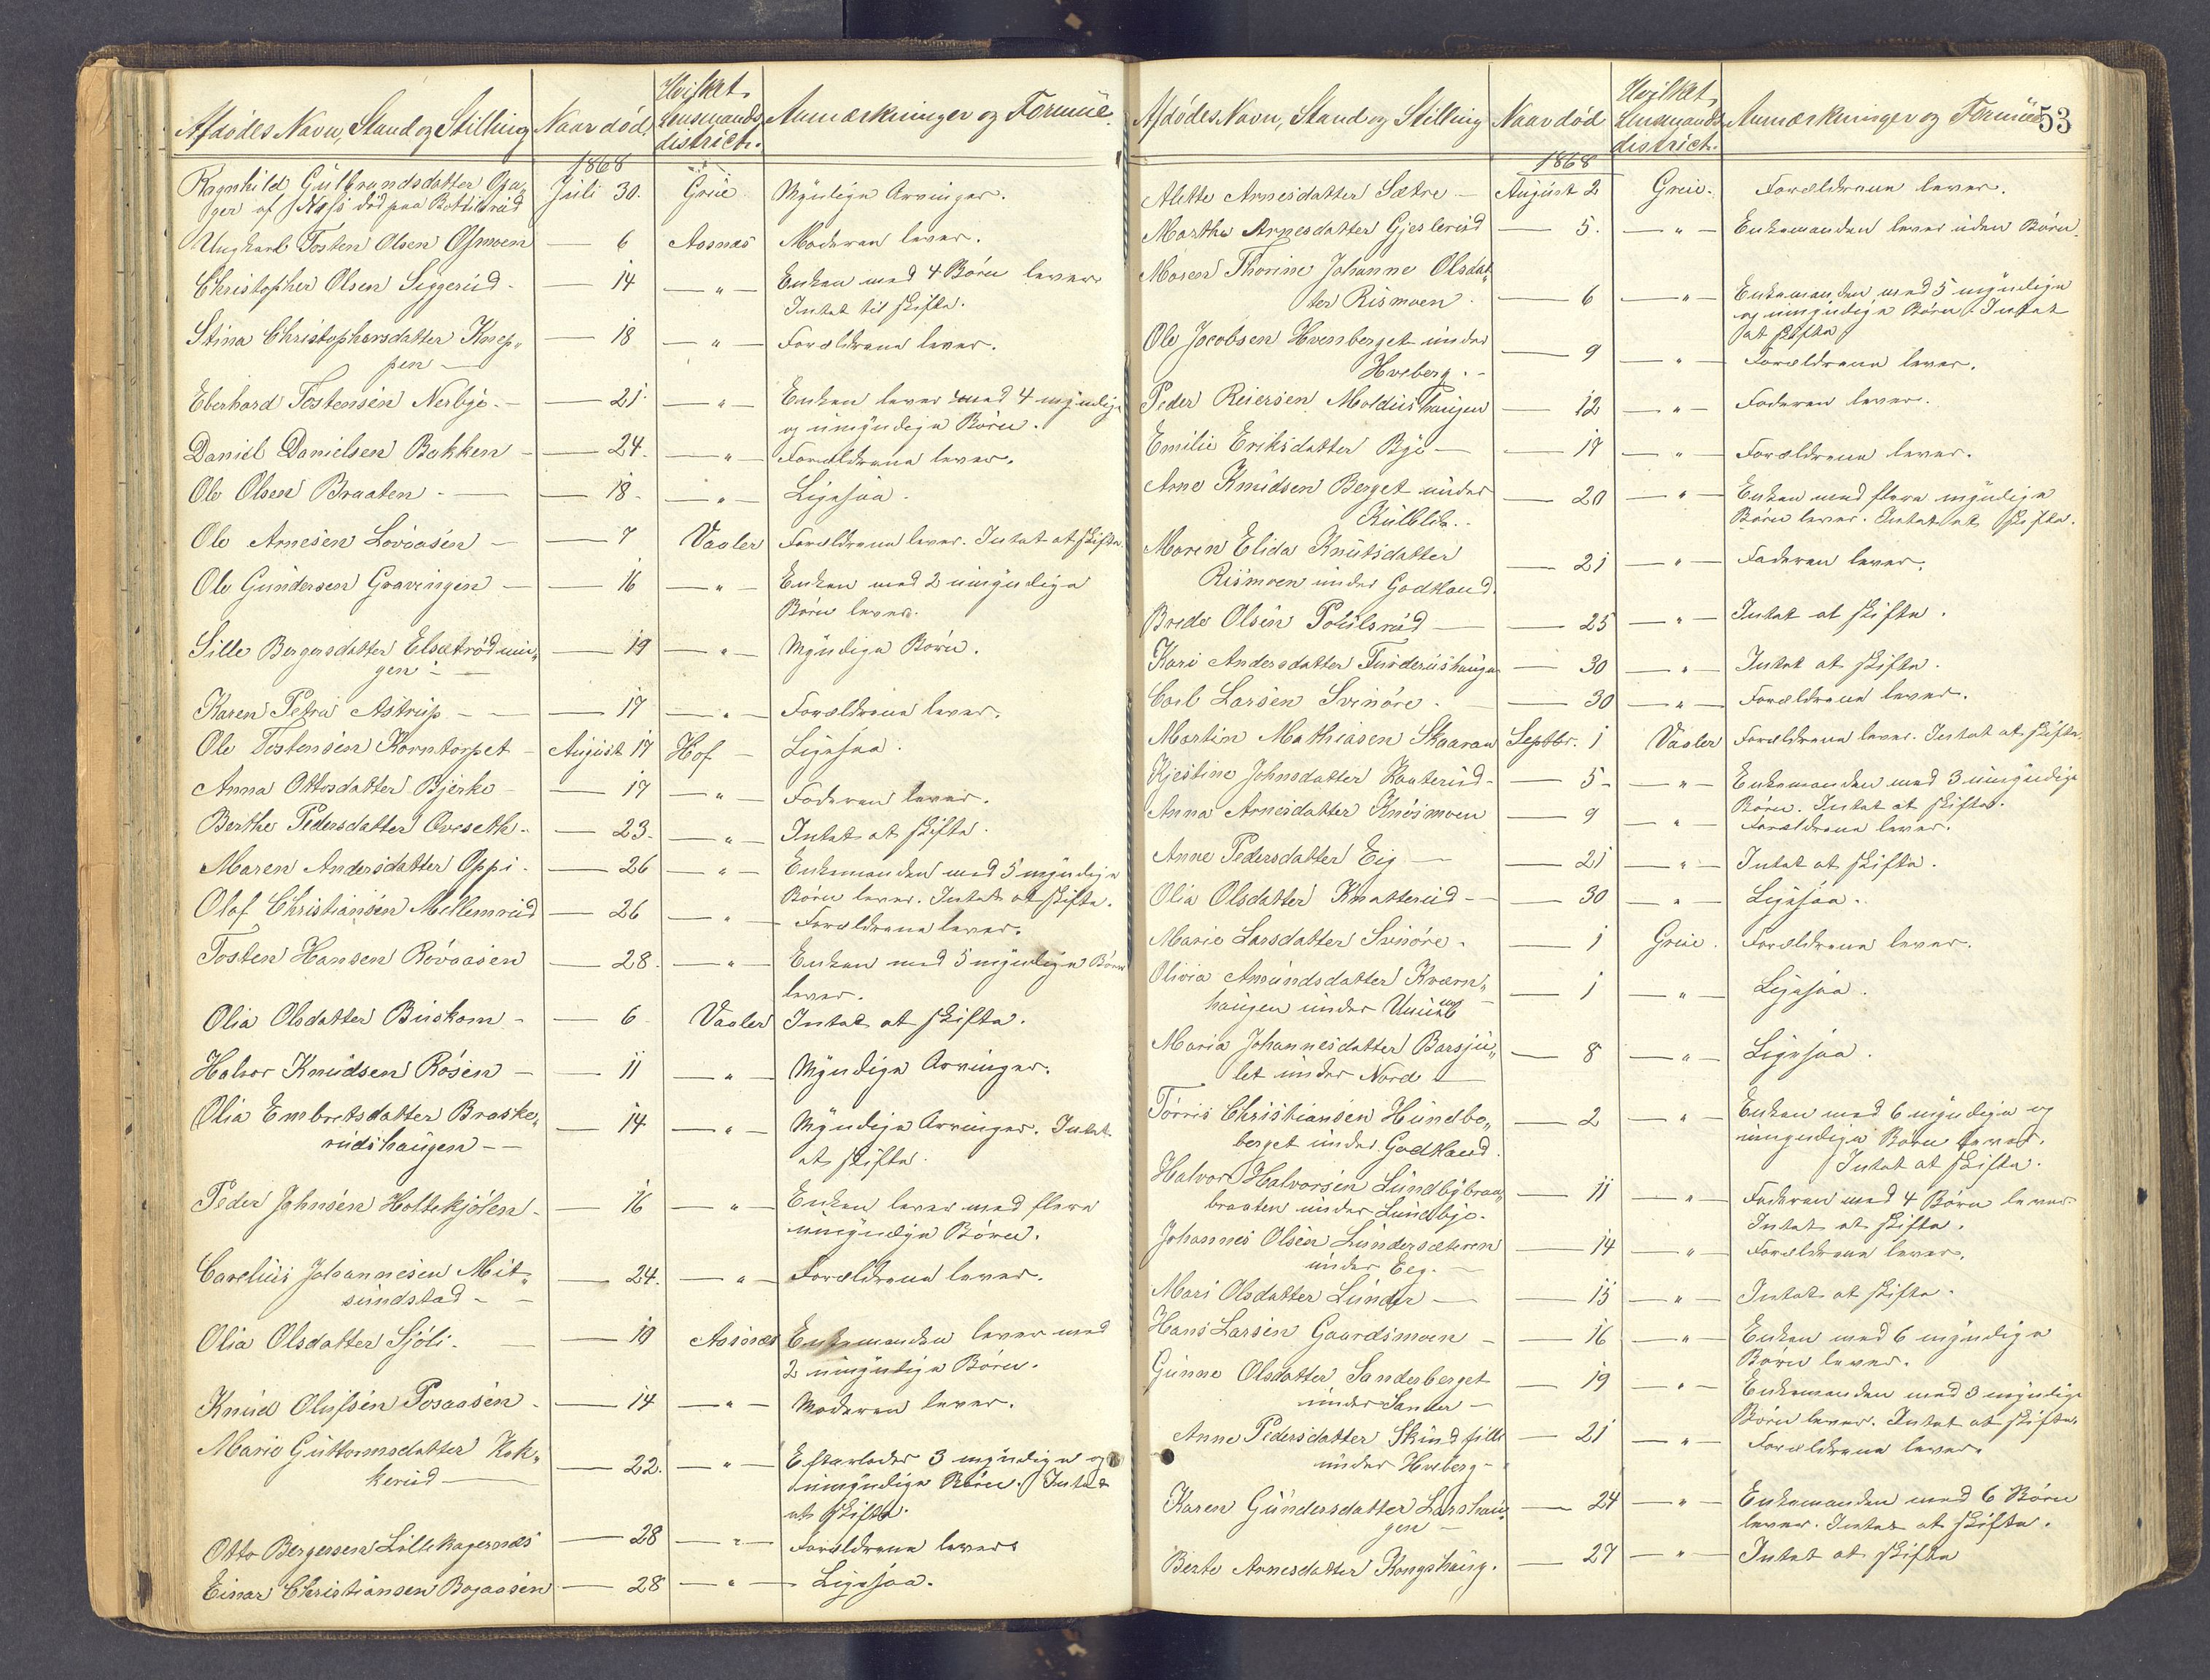 Afdødes Navn, Stand og Stilling Naar død Hvilket Lensmands district. Anmærkninger og Formue.
1868
Ragnhild Gulbrandsdatter Opa„ Juli 30. Grue Myndige Arvinger.
ger af Næs død paa
Ungkarl Tosten Olsen Osmoen — 6 Aasnæs Moderen lever.
Christopher Olsen Siggerud — 14 — „ — Enken med 4 Børn lever
Intet til skifte.
Stina Christophersdatter Knep„ — 18 — „ — Forældrene lever.
pen —
Eberhard Tostensen Nerbye — 21 — „ — Enken lever med 4 myndige
og umyndige Børn.
Daniel Danielsen Bakken — 24. — „ — Forældrene lever.
Ole Olsen Braaten — 18. — „ — Ligesaa.
Ole Arnesen Løvaasen — 7 Vaaler Forældrene lever. Intet at skifte.
Ole Gundersen Gravingen — 16 — „ — Enken med 2 umyndige
Børn lever.
Sille Bergersdatter — 19 — „ — Myndige Børn.
gen —
Karen Petra Astrup — 17 — „ — Forældrene lever.
Ole Tostensen Korntorpet — August 17 Hof — Ligesaa.
Anna Ottosdatter Bjerke — 17 — „ — Faderen lever.
Berthe Pedersdatter Overseth — 23. — „ — Intet at skifte.
Maren Andersdatter Oppi — 26 — „ — Enkemanden med 5 myndige
Børn lever. Intet at skifte.
Olaf Christiansen Mellemrud — 26 — „ — Forældrene lever.
Tosten Hansen Røvaasen — 28. — „ — Enken med 5 myndige Børn
lever.
Olia Olsdatter Buskom — 6 Vaaler Intet at skifte.
Halvor Knudsen Røsen — 11 — „ — Myndige Arvinger.
Olia Embretsdatter Braske„ — 14 — „ — Myndige Arvinger. Intet
rudshaugen — at skifte.
Peder Johnsen Holtekjølen — 16 — „ — Enken lever med flere
umyndige Børn.
Carelius Johannesen Mit„ — 24. — „ — Forældrene lever.
sundstad —
Olia Olsdatter Sjøli — 10 Aasnæs Enkemanden lever med
2 umyndige Børn.
Knud Olufsen Posaasen — 14 — „ — Moderen lever.
Marie Guttormsdatter Kok„ — 22. — „ — Efterlader 3 myndige og
kerud — umyndige Børn. Intet
at skifte.
Otto Bergersen Lillehagernæs — 28 — „ — Forældrene lever.
Einar Christiansen Bogaasen — 28 — „ — Ligesaa.
Afdødes Navn, Stand og Stilling Naar død Hvilket Lensmands district. Anmærkninger og Formue 53
1868
Alette Arnesdatter Sætre — August 2 Grue. Forældrene lever.
Marthe Arnesdatter Gjeslerud — 5. — „ — Enkemanden lever uden Børn.
Maren Thorine Johanne Olsdat„
ter Rismoen — 6 — „ — Enkemanden med 5 myndige
og umyndige Børn. Intet
at skifte
Ole Jacobsen Hvenberget under — 9 — „ — Forældrene lever.
Hveberg. —
Peder Reiersen Moldushaugen — 12 — „ — Faderen lever.
Emilie Eriksdatter Bye — 17 — „ — Forældrene lever.
Arne Knudsen Berget under — 20 — „ — Enken med flere myndige
Kulblik. Børn lever. Intet at skifte.
Maren Elida Knutsdatter — 21 — „ — Faderen lever.
Rismoen under Godtland.
Brede Olsen Poulsrud — 25 — „ — Intet at skifte.
Kari Andersdatter — 30 — „ — Intet at skifte.
Carl Larsen Svinøre. — 30 — „ — Forældrene lever.
Martin Mathiasen Skaaran Septbr. 1 Vaaler Forældrene lever. Intet at skifte.
Kjestine Johnsdatter Kaaterud — 5 — „ — Enkemanden med 3 umyndige
Børn. Intet at skifte.
Anna Arnesdatter Knøsmoen — 9 — „ — Forældrene lever.
Anne Pedersdatter Eig — 21 — „ — Intet at skifte.
Olia Olsdatter Knatterud — 30 — „ — Ligesaa.
Marie Larsdatter Svinøre — 1 Grue. Forældrene lever.
Olivia Amundsdatter Kværn„ — 1 — „ — Ligesaa.
haugen under
Maria Johannesdatter Barsju„ — 8 — „ — Ligesaa.
let under Nord —
Tørris Christiansen Hundbo„ — 2 — „ — Enken med 6 myndige og
berget under Godtland. umyndige Børn lever.
Intet at skifte.
Halvor Halvorsen Lundbybraa„ — 11 — „ — Faderen med 4 Børn lever
braaten under Lundbye. Intet at skifte.
Johannes Olsen Lundersæteren — 14 — „ — Forældrene lever.
under Eeg. —
Mari Olsdatter Lunder — 15 — „ — Intet at skifte.
Hans Larsen Gaardsmoen — 16 — „ — Enken med 6 myndige
Børn lever.
Gunne Olsdatter Sanderberget — 19 — „ — Enkemanden med 3 myndige
under Sander — Børn lever. Intet at skifte.
Anne Pedersdatter Skindfille — 21 — „ — Forældrene lever.
under Hveberg —
Karen Gundersdatter Larshau„ — 24 — „ — Enkemanden med 6 Børn
gen — lever. Intet at skifte.
Berte Arnesdatter Kongshaug. — 27 — „ — Intet at skifte